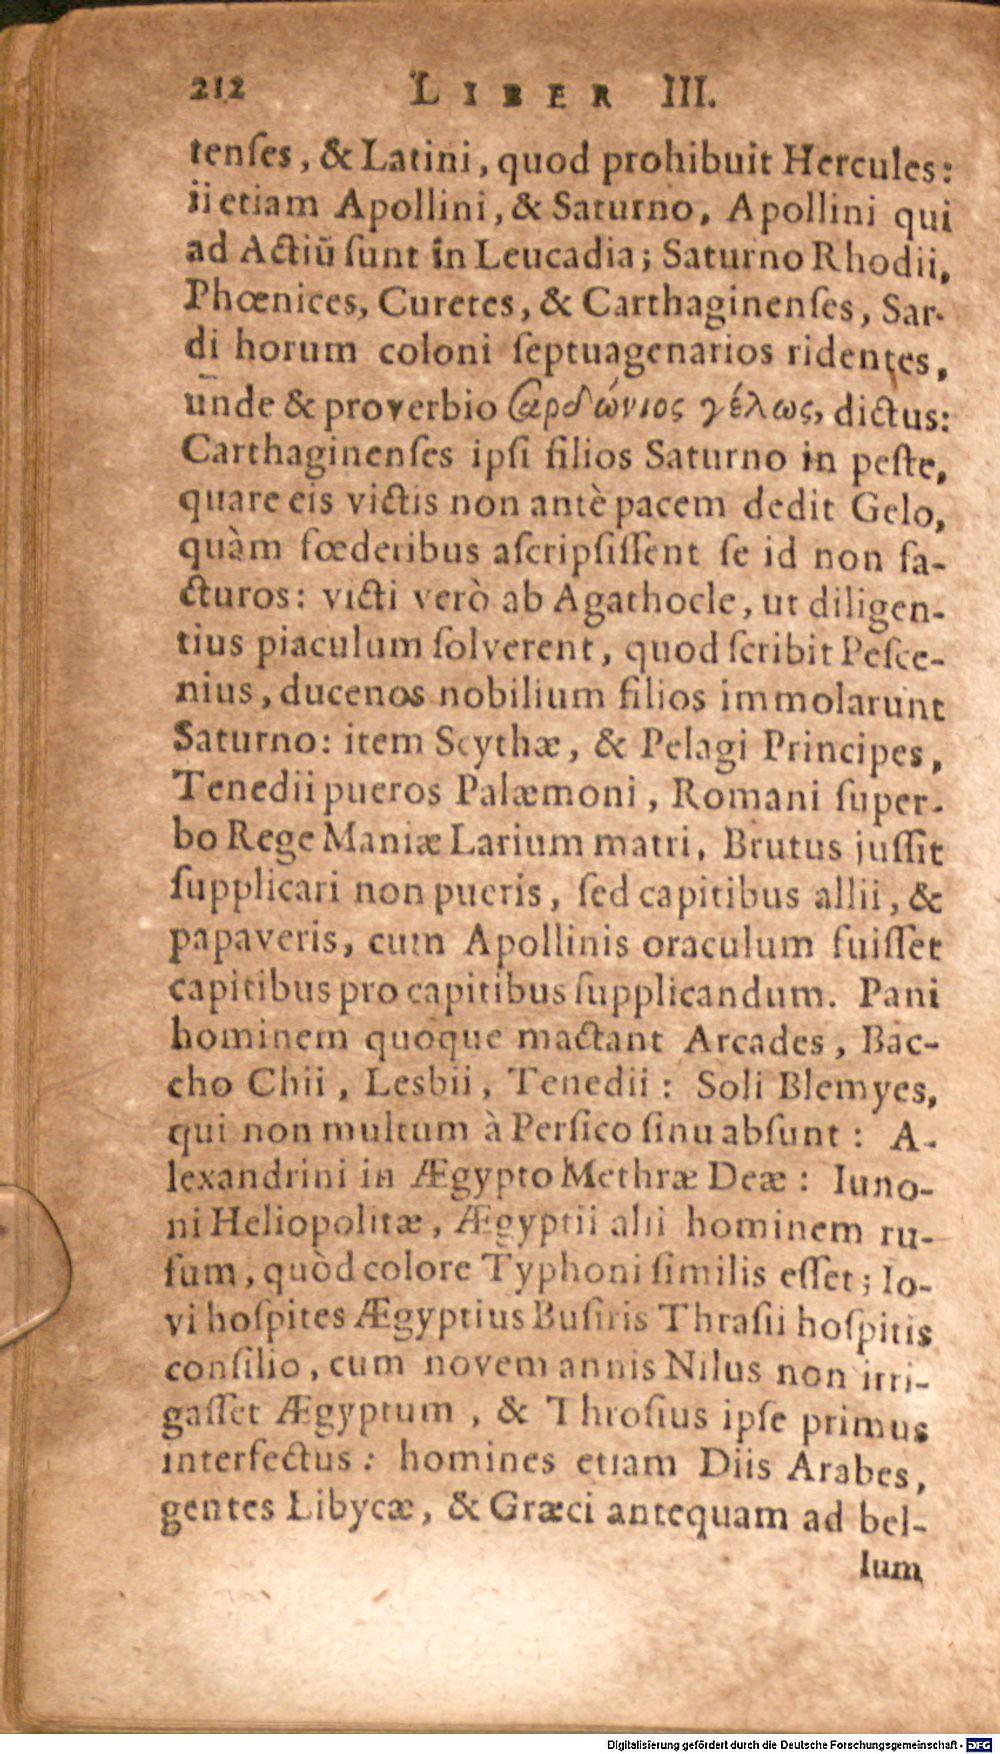 212 LIBER III.
tenſes, & Latini, quod prohibuit Hercules:
ii etiam Apollini, & Saturno, Apollini qui
ad Actiū ſunt in Leucadia; Saturno Rhodii,
Phœnices, Curetes, & Carthaginenſes, Sar-
di horum coloni ſeptuagenarios ridentes,
unde & proverbio Σαρδώνιος γέλως, dictus:
Carthaginenſes ipſi filios Saturno in peſte,
quare eis victis non antè pacem dedit Gelo,
quàm fœderibus aſcripſiſſent ſe id non fa-
cturos: victi verò ab Agathocle, ut diligen-
tius piaculum ſolverent, quod ſcribit Peſce-
nius, ducenos nobilium filios immolarunt
Saturno: item Scythæ, & Pelagi Principes,
Tenedii pueros Palæmoni, Romani ſuper-
bo Rege Maniæ Larium matri, Brutus juſſit
ſupplicari non pueris, ſed capitibus allii, &
papaveris, cum Apollinis oraculum fuiſſet
capitibus pro capitibus ſupplicandum. Pani
hominem quoque mactant Arcades, Bac-
cho Chii, Lesbii, Tenedii: Soli Blemyes,
qui non multum à Perſico ſinu abſunt: A-
lexandrini in Ægypto Methræ Deæ: Iuno-
ni Heliopolitæ, Ægyptii alii hominem ru-
fum, quòd colore Typhoni ſimilis eſſet; Io-
vi hoſpites Ægyptius Buſiris Thraſii hoſpitis
conſilio, cum novem annis Nilus non irri-
gaſſet Ægyptum, & Throſius ipſe primus
interfectus: homines etiam Diis Arabes,
gentes Libycæ, & Græci antequam ad bel-
lum
Digitalisierung gefördert durch die Deutsche Forschungsgemeinschaft - DFG